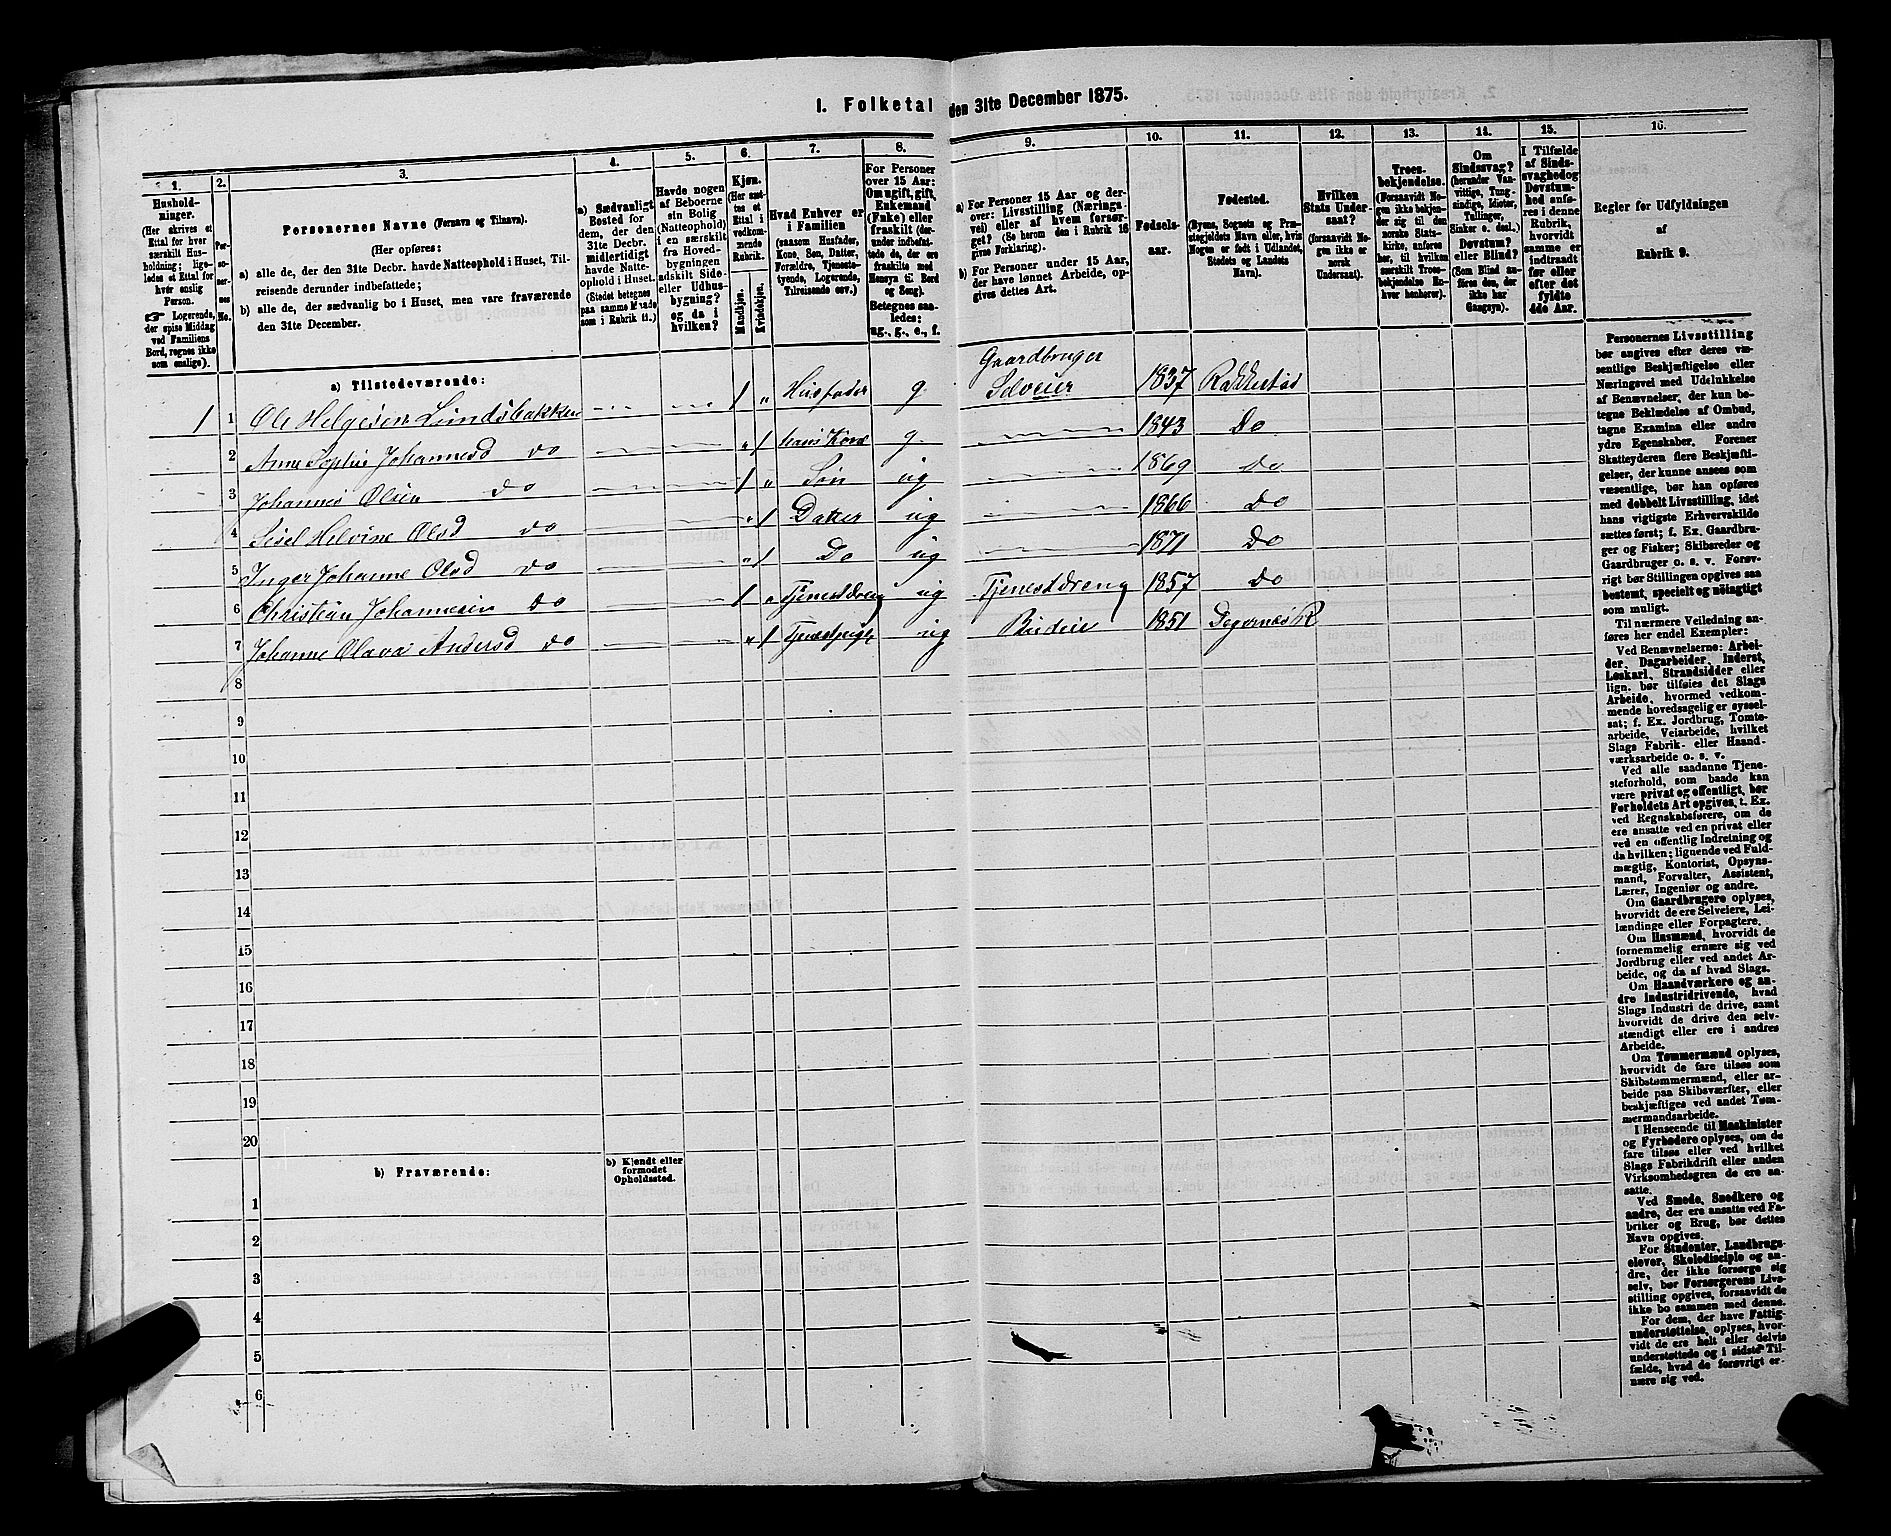 1. Folketal den 31te December 1875.
1.
Hushold-
ninger.
(Her skrives et
Ettal for hver
særskilt Hus-
holdning; lige-
ledes et Ettal for
hver enslig
Person.
☞ Logerende,
der spise Middag
ved Familiens
Bord, regnes ikke
som enslige).
2.
Per-
so-
ner-
nes
No.
3.
Personernes Navne (Fornavn og Tilnavn).
(Her opføres:
a) alle de, der den 31te Decbr. havde Natteophold i Huset, Til-
reisende derunder indbefattede;
b) alle de, der sædvanlig bo i Huset, men vare fraværende
den 31te December.
4.
a) Sædvanligt
Bosted for
dem, der den
31te Decbr.
midlertidigt
havde Natte-
ophold i Huset.
(Stedet betegnes
paa samme Maade
som i Rubrik 11.)
5.
Havde nogen
af Beboerne
sin Bolig
(Natteophold)
i en særskilt
fra Hoved-
bygningen
adskilt Side-
eller Udhus-
bygning?
og da i
hvilken?
6.
Kjøn.
(Her sæt-
tes et
Ettal i
vedkom-
mende
Rubrik.
Mandkjøn.
Kvindekjøn.
7.
Hvad Enhver er
i Familien
(saasom Husfader,
Kone, Søn, Datter,
Forældre, Tjeneste-
tyende, Logerende,
Tilreisende osv.)
8.
For Personer
over 15 Aar:
Om ugift, gift,
Enkemand
(Enke) eller
fraskilt (der-
under indbefat-
tede de, der ere
fraskilte med
Hensyn til Bord
og Seng).
Betegnes saa-
ledes:
ug., g., e., f.
9.
a) For Personer 15 Aar og der-
over: Livsstilling (Nærings-
vei) eller af hvem forsør-
get? (Se herom den i Rubrik 16
givne Forklaring).
b) For Personer under 15 Aar,
der have lønnet Arbeide, op-
gives dettes Art.
10.
Fødsels-
aar.
11.
Fødested.
(Byens, Sognets og Præ-
stegjeldets Navn eller, hvis
Nogen er født i Udlandet,
Stedets og Landets
Navn).
12.
Hvilken
Stats Under-
saat?
(forsaavidt No-
gen ikke er
norsk
Undersaat).
13.
Troes-
bekjendelse.
(Forsaavidt No-
gen ikke bekjen-
der sig til den
norske Stats-
kirke, anføres
her, til hvilken
særskilt Troes-
bekjendelse En-
hver henhører).
14.
Om
Sindssvag?
(herunder Van-
vittige, Idioter,
Tullinger,
Sinker o. desl.)
Døvstum?
eller Blind?
(Som Blind an-
føres den, der
ikke har
Gangsyn).
15.
I Tilfælde
af Sinds-
svaghed og
Døvstum-
hed anfø-
res i denne
Rubrik,
hvorvidt
samme er
indtraadt
før eller
efter det
fyldte
4de Aar.
16.
Regler for Udfyldningen
af
Rubrik 9.
a) Tilstedeværende:
1 1 Ole Helgesen Lundsbakken 1 " Husfader g Gaardbruger Selveier 1837 Rakkestad
2 Anne Sophie Johannesd do " 1 hans Kone g. 1843 Do
3 Johannes Olsen do 1 " Søn ug 1869 Do
4 Sisel Helvine Olsd do " 1 Datter ug 1866 Do
5 Inger Johanne Olsd do " 1 Do ug 1871 Do
6 Christian Johannesen do 1 " Tjenestdreng ug Tjenestdreng 1857 Do
7 Johanne Olava Andersd do " 1 Tjenestpige ug Budeie 1851 Degernes R
8
9
10
11
12
13
14
15
16
17
18
19
20
b) Fraværende:
b) Kjendt eller
formodet
Opholdssted.
1
2
3
4
5
6
Personernes Livsstilling
bør angives efter deres væ-
sentlige Beskjæftigelse eller
Næringsvei med Udelukkelse
af Benævnelser, der kun be-
tegne Beklædelse af Ombud,
tagne Examina eller andre
ydre Egenskaber. Forener
Skatteyderen flere Beskjæfti-
gelser, der kunne ansees som
væsentlige, bør han opføres
med dobbelt Livsstilling, idet
hans vigtigste Erhvervskilde
sættes først; f. Ex. Gaardbru-
ger og Fisker; Skibsreder og
Gaardbruger o. s. v. Forøv-
rigt bør Stillingen opgives saa
bestemt, specielt og nøiagtigt
som muligt.
Til nærmere Veiledning an-
føres her endel Exempler:
Ved Benævnelserne: Arbei-
der, Dagarbeider, Inderst,
Løskarl, Strandsidder eller
lign. bør tilføies det Slags
Arbeide, hvormed vedkom-
mende hovedsagelig er syssel-
sat; f. Ex. Jordbrug, Tomte-
arbeide, Veiarbeide, hvilket
Slags Fabrik- eller Haand-
værksarbeide o. s. v.
Ved alle saadanne Tjene-
steforhold, som baade kan
være privat og offentligt, bør
Forholdets Art opgives, t. Ex.
ved Regnskabsførere, om de
ere ansatte ved en privat eller
ved en offentlig Indretning og
da hvilken; lignende ved Fuld-
mægtig, Kontorist, Opsyns-
mand, Forvalter, Assistent,
Lærer, Ingeniør og andre.
Om Gaardbrugere oplyses,
hvorvidt de ere Selveiere, Lei-
lændinge eller Forpagtere.
Om Husmænd, hvorvidt de
fornemmelig ernære sig ved
Jordbrug eller ved andet Ar-
beide, og da af hvad Slags.
Om Haandværkere og an-
dre Industridrivende, hvad
Slags Industri de drive, samt
hvorvidt de drive den selv-
stændigt eller ere i andres
Arbeide.
Om Tømmermænd oplyses,
hvorvidt de fare tilsøs som
Skibstømmermænd, eller ar-
beide paa Skibsværfter, eller
beskjæftiges ved andet Tøm-
mermandsarbeide.
I Henseende til Maskinister
og Fyrbødere oplyses, om de
fare tilsøs eller ved hvilket
Slags Fabrikdrift eller anden
Virksomhedsgren de ere an-
satte.
Ved Smede, Snedkere og
andre, der ere ansatte ved Fa-
briker og Brug, bør dettes
Navn opgives.
For Studenter, Landbrugs-
elever, Skoledisciple og an-
dre, der ikke forsørge sig
selv, bør Forsørgerens Livs-
stilling opgives, forsaavidt de
ikke bo sammen med denne.
For dem, der have Fattig-
understøttelse, oplyses, hvor-
vidt de ere helt eller delvis
understøttede og i sidste Til-
fælde, hvad de forøvrigt er-
nære sig ved.